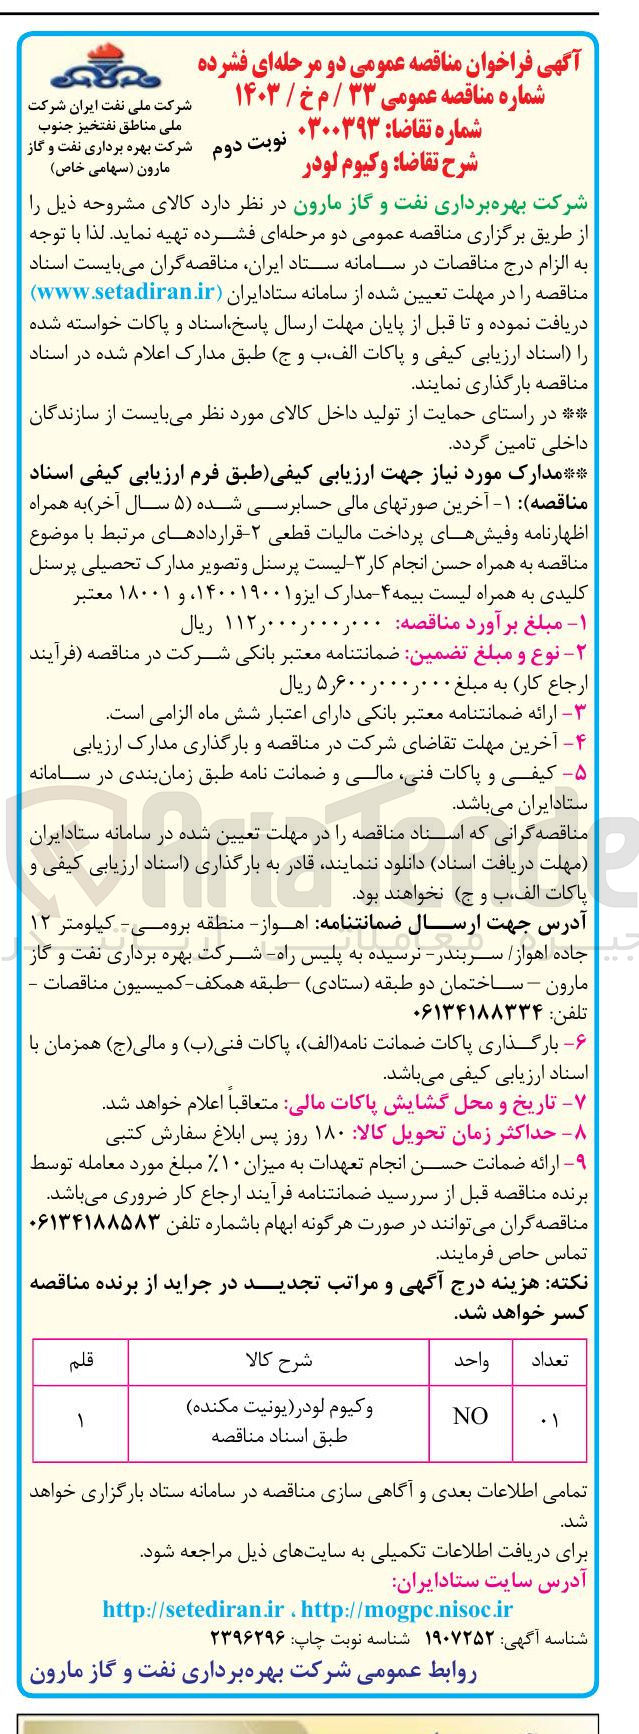 آگهی فراخوان مناقصه عمومی دو مرحله‌ای فشرده
شماره مناقصه عمومی ۳۳ / م خ / ۱۴۰۳
شماره تقاضا: ۰۳۰۰۳۹۳
نوبت دوم
شرح تقاضا: وکیوم لودر
شرکت ملی نفت ایران شرکت
ملی مناطق نفتخیز جنوب
شرکت بهره برداری نفت و گاز
مارون (سهامی خاص)
شرکت بهره‌برداری نفت و گاز مارون در نظر دارد کالای مشروحه ذیل را
از طریق برگزاری مناقصه عمومی دو مرحله‌ای فشرده تهیه نماید. لذا با توجه
به الزام درج مناقصات در سامانه ستاد ایران، مناقصه‌گران می‌بایست اسناد
مناقصه را در مهلت تعیین شده از سامانه ستادایران (www.setadiran.ir)
دریافت نموده و تا قبل از پایان مهلت ارسال پاسخ،اسناد و پاکات خواسته شده
را (اسناد ارزیابی کیفی و پاکات الف،ب و ج) طبق مدارک اعلام شده در اسناد
مناقصه بارگذاری نمایند.
** در راستای حمایت از تولید داخل کالای مورد نظر می‌بایست از سازندگان
داخلی تامین گردد.
**مدارک مورد نیاز جهت ارزیابی کیفی(طبق فرم ارزیابی کیفی اسناد
مناقصه): ۱- آخرین صورتهای مالی حسابرسی شده (۵ سال آخر)به همراه
اظهارنامه وفیش‌های پرداخت مالیات قطعی ۲-قراردادهای مرتبط با موضوع
مناقصه به همراه حسن انجام کار۳-لیست پرسنل وتصویر مدارک تحصیلی پرسنل
کلیدی به همراه لیست بیمه۴-مدارک ایزو۱۴۰۰۱۹۰۰۱، و ۱۸۰۰۱ معتبر
۱- مبلغ برآورد مناقصه: ۱۱۲٫۰۰۰٫۰۰۰٫۰۰۰ ریال
۲- نوع و مبلغ تضمین: ضمانتنامه معتبر بانکی شرکت در مناقصه (فرآیند
ارجاع کار) به مبلغ ۵٫۶۰۰٫۰۰۰٫۰۰۰ ریال
۳- ارائه ضمانتنامه معتبر بانکی دارای اعتبار شش ماه الزامی است.
۴- آخرین مهلت تقاضای شرکت در مناقصه و بارگذاری مدارک ارزیابی
۵- کیفی و پاکات فنی، مالی و ضمانت نامه طبق زمان‌بندی در سامانه
ستادایران می‌باشد.
مناقصه‌گرانی که اسناد مناقصه را در مهلت تعیین شده در سامانه ستادایران
(مهلت دریافت اسناد) دانلود ننمایند، قادر به بارگذاری (اسناد ارزیابی کیفی و
پاکات الف،ب و ج) نخواهند بود.
آدرس جهت ارسال ضمانتنامه: اهواز- منطقه برومی- کیلومتر ۱۲
جاده اهواز/ سربندر- نرسیده به پلیس راه- شرکت بهره برداری نفت و گاز
مارون – ساختمان دو طبقه (ستادی) –طبقه همکف-کمیسیون مناقصات -
تلفن: ۰۶۱۳۴۱۸۸۳۳۴
۶- بارگذاری پاکات ضمانت نامه(الف)، پاکات فنی(ب) و مالی(ج) همزمان با
اسناد ارزیابی کیفی می‌باشد.
۷- تاریخ و محل گشایش پاکات مالی: متعاقباً اعلام خواهد شد.
۸- حداکثر زمان تحویل کالا: ۱۸۰ روز پس ابلاغ سفارش کتبی
۹- ارائه ضمانت حسن انجام تعهدات به میزان۱۰٪ مبلغ مورد معامله توسط
برنده مناقصه قبل از سررسید ضمانتنامه فرآیند ارجاع کار ضروری می‌باشد.
مناقصه‌گران می‌توانند در صورت هرگونه ابهام باشماره تلفن ۰۶۱۳۴۱۸۸۵۸۳
تماس حاص فرمایند.
نکته: هزینه درج آگهی و مراتب تجدید در جراید از برنده مناقصه
کسر خواهد شد.
تعداد واحد شرح کالا قلم
۰۱ NO وکیوم لودر(یونیت مکنده) ۱
طبق اسناد مناقصه
تمامی اطلاعات بعدی و آگاهی سازی مناقصه در سامانه ستاد بارگزاری خواهد
شد.
برای دریافت اطلاعات تکمیلی به سایت‌های ذیل مراجعه شود.
آدرس سایت ستادایران:
http://setediran.ir ، http://mogpc.nisoc.ir
شناسه آگهی: ۱۹۰۷۲۵۲ شناسه نوبت چاپ: ۲۳۹۶۲۹۶
روابط عمومی شرکت بهره‌برداری نفت و گاز مارون